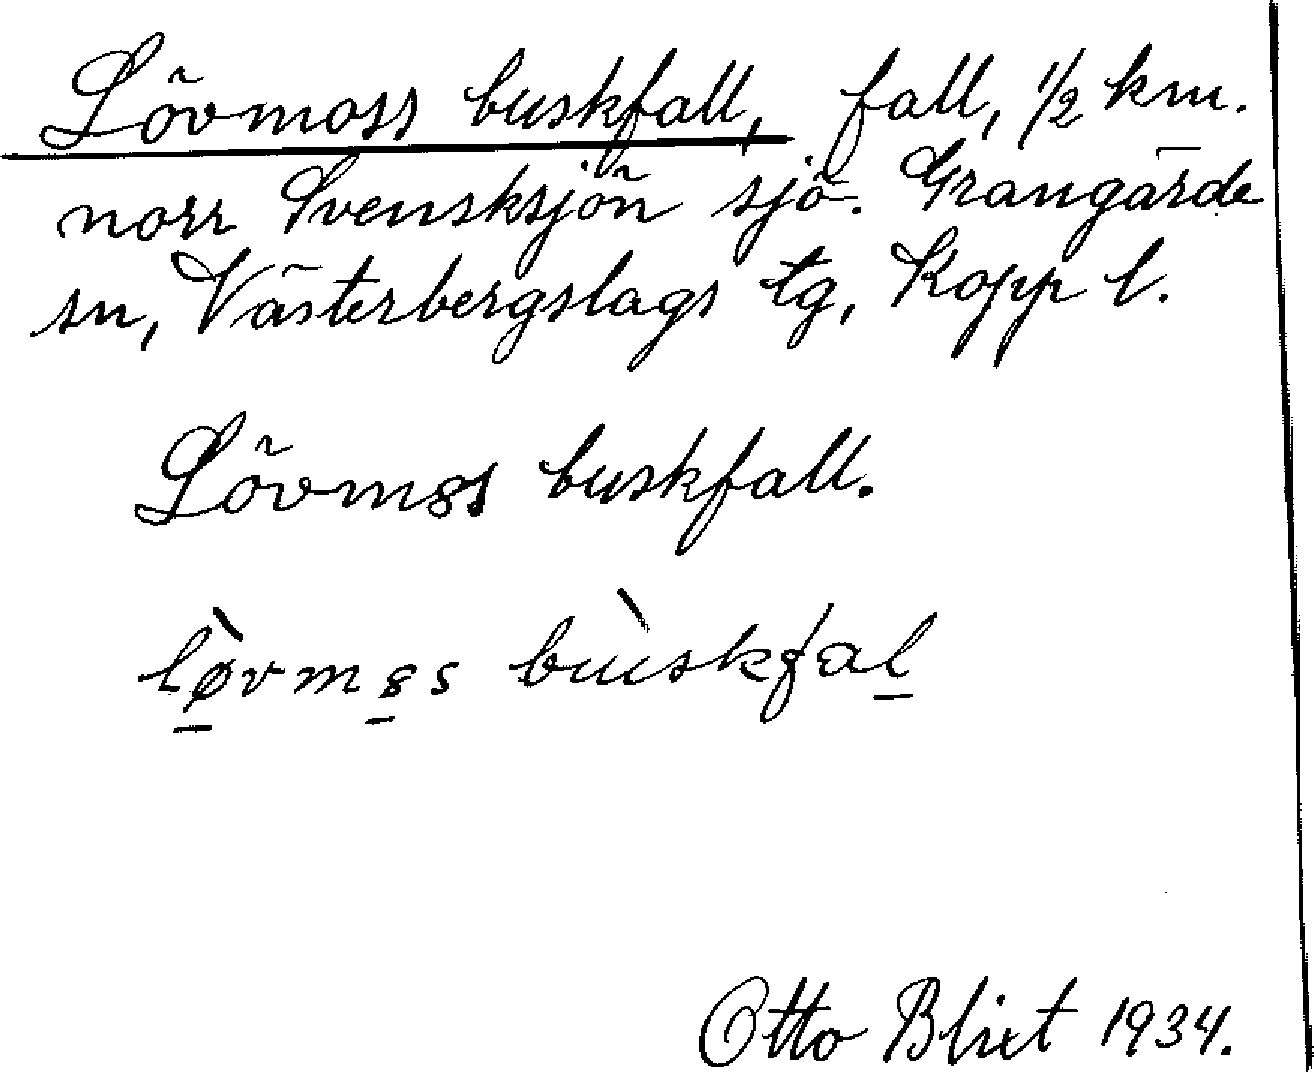 Lövmoss buskfall, fall, 1/2 km.
norr Svensksjön sjö. Grangärde
sn, Västerbergslags tg, Kopp l.
Lövmȣs buskfall.
lø̀vmȣs bùskfal
Otto Blixt 1934.